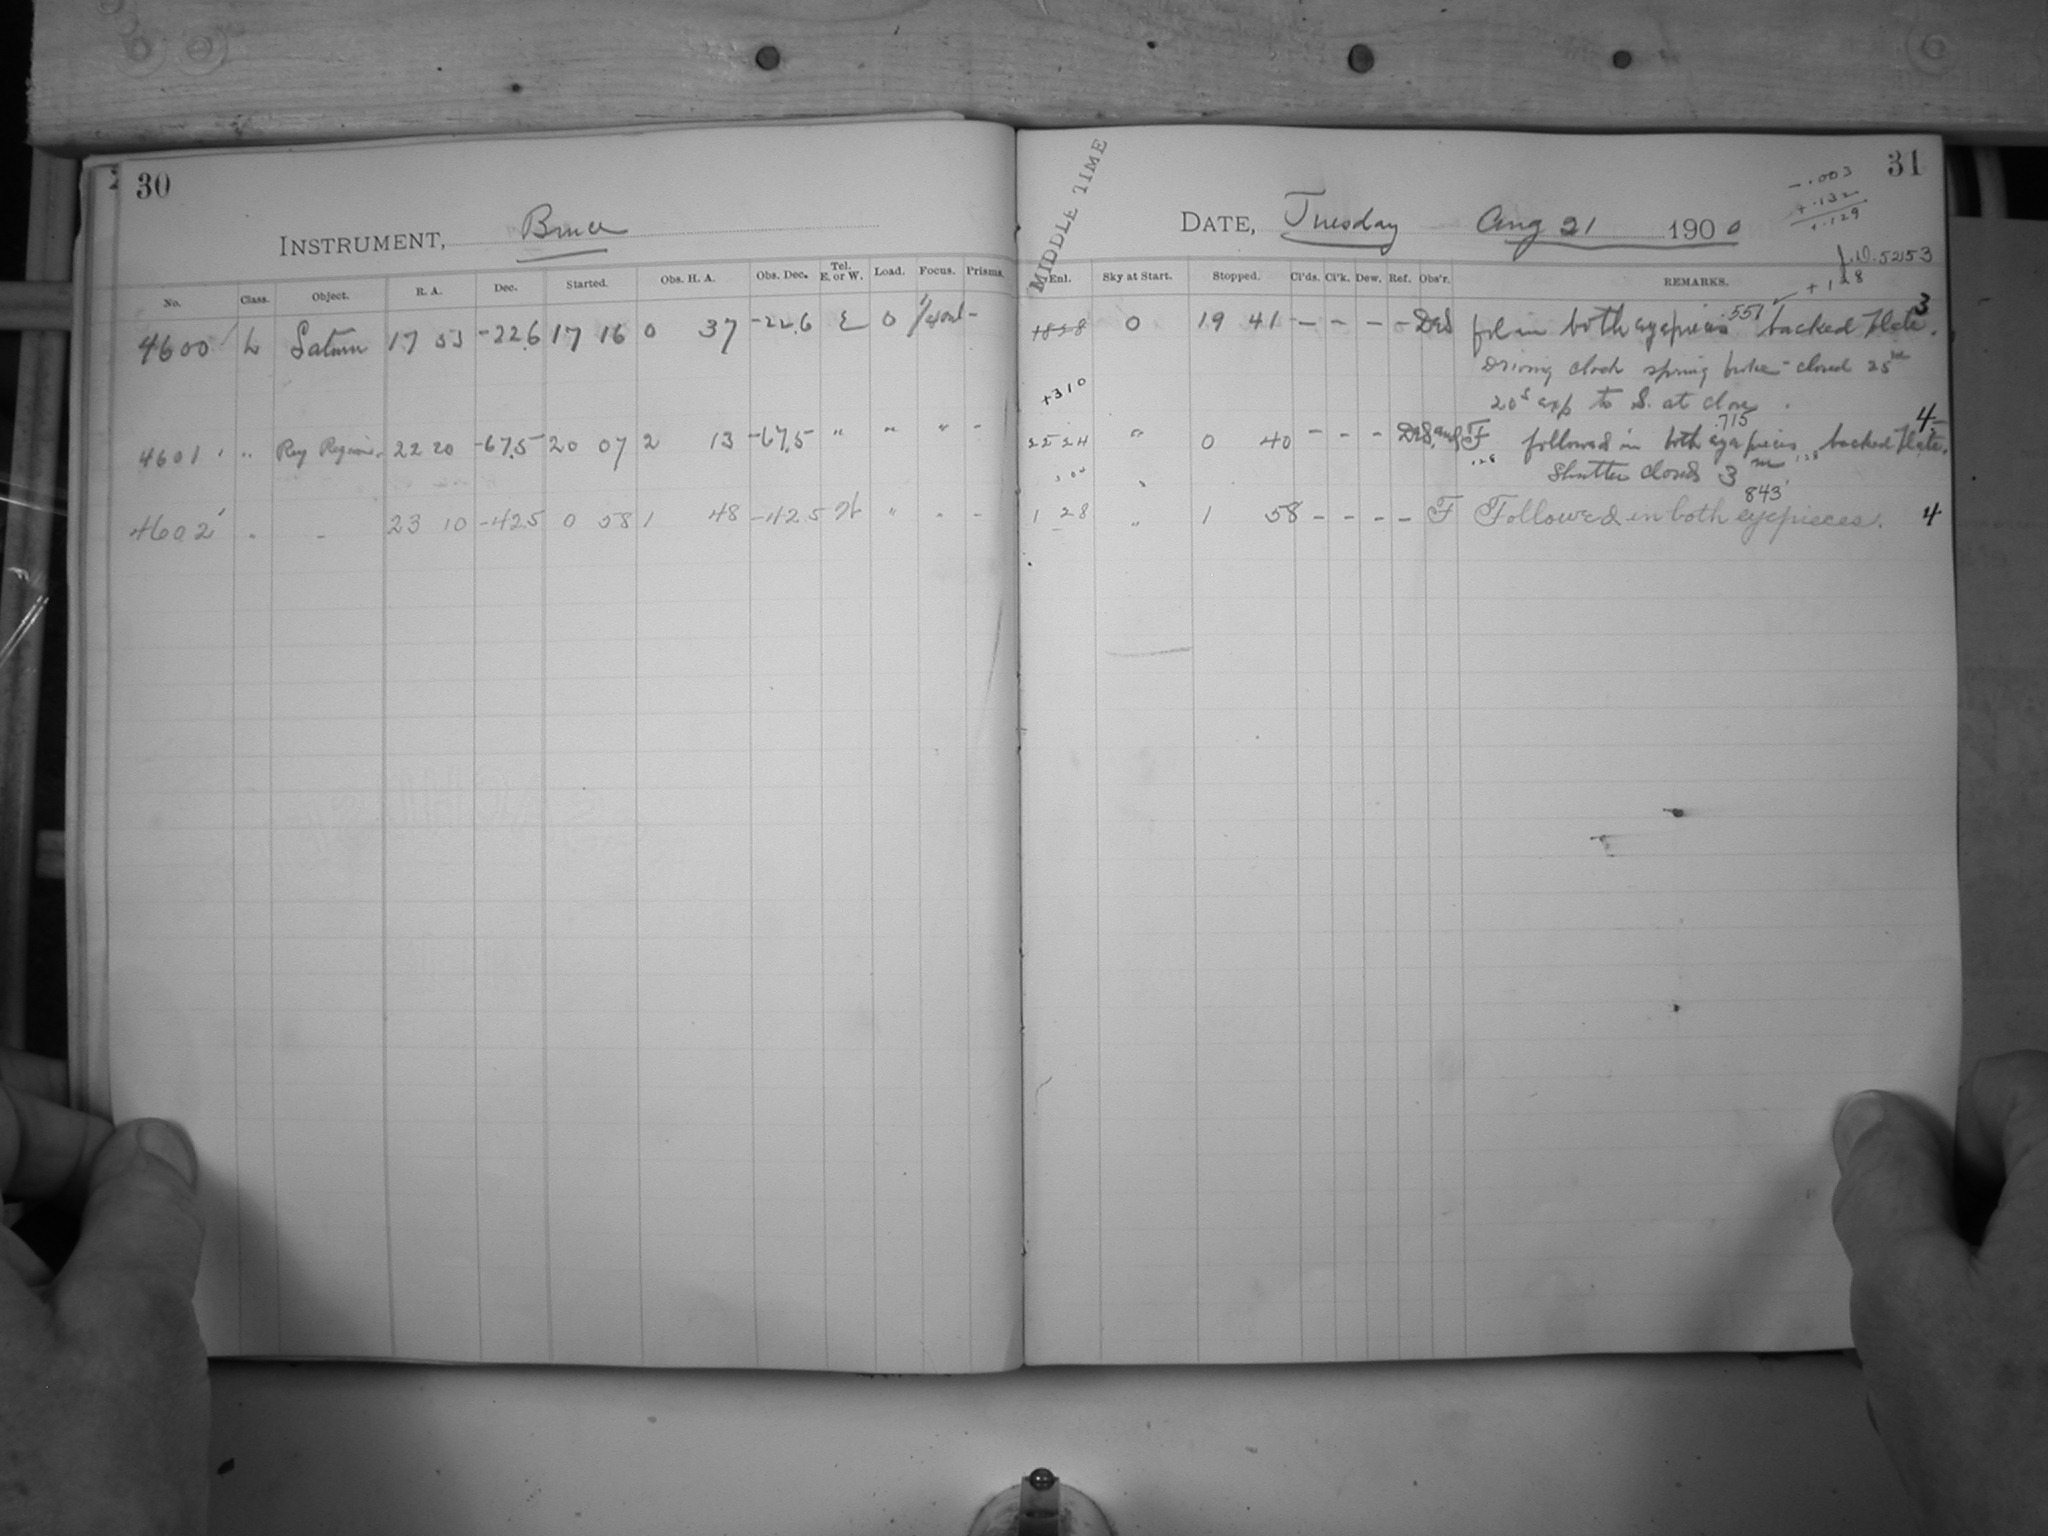 30
INSTRUMENT, Bruce
No. Class. Object. R. A. Dec. Started. Obs. H. A. Obs. Dec. Tel. E. or W. Load. Focus. Prisms.
4600 L Saturn 17 53 -22.6 17 16 0 37 -22.6 E 0 -
4601 " Reg Region. 22 20 -67.5 20 07 2 13 -67.5 " " " -
4602 " - 23 10 -42.5 0 58 1 48 -42.5 W " " -
31
MIDDLE TIME
DATE, Tuesday Aug 21 1900
-.003
+.132
+.129
J.D. 5253
+128
Enl. Sky at Start. Stopped. Cl'ds. Cl'k. Dew. Ref. Obs'r. REMARKS.
.551 3
1828 0 19 41 - - - - DeS fol in both eyepieces backed Plate.
Driving clock spring broke - closed 25m
+310
20s exp to S. at close.
.715 4
22 24 " 0 40 - - - DeS and F followed in both eyepieces backed Plate.
Shutter closed 3m
843
1 28 " 1 58 - - - - F Followed in both eyepieces. 4